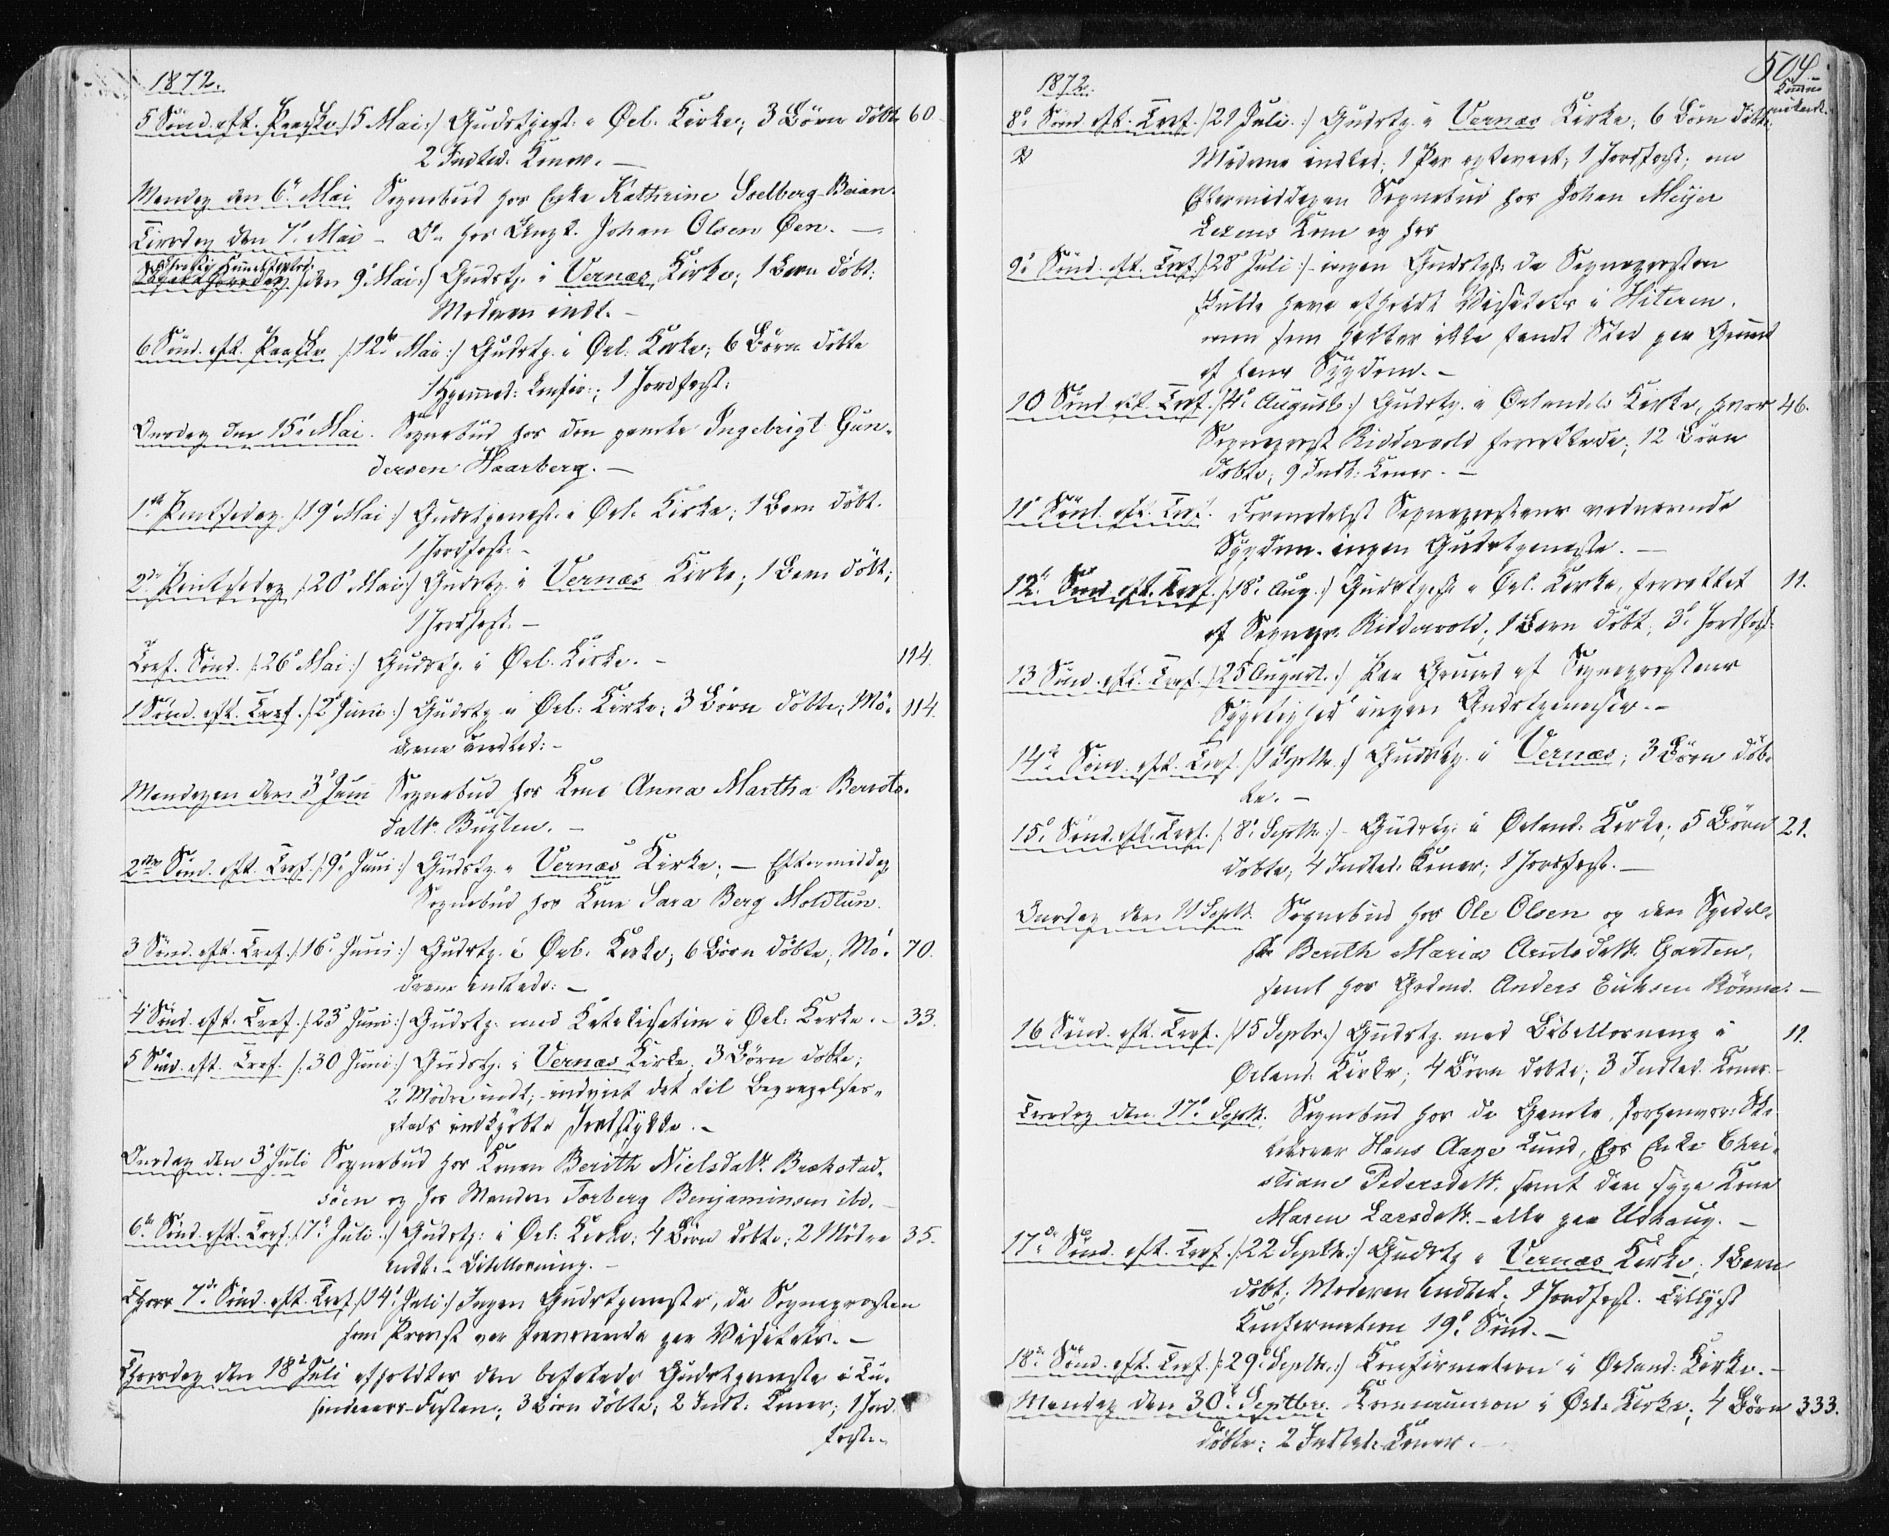 1872.
5 Sønd. eft. Paaske /: 5 Mai :/ Gudstjenst. i Ørl. Kirke; 3 Børn døbte 60.
2 Indled. Koner. —
Mandag den 6te Mai Sognebud hos Enke Kathrine Soelberg Beian.
Tirsdag den 7de Mai — Do. hos Johan Olsen Øen. —
/: den 9de Mai :/ Gudstj. i Vernæs Kirke; 1 Barn døbt;
Moderen indl. —
6 Sønd. eft. Paaske /: 12te Mai :/ Gudstj. i Ørl. Kirke; 6 Børn døbte
1 Jordfæst:
Onsdag den 15de Mai. Sognebud hos den gamle Ingebrigt Gun-
dersen Haarberg. —
1ste Pintsedag /: 19de Mai :/ Gudstjeneste i Ørl. Kirke; 1 Barn døbt.
1 Jordfæst. —
2den Pintsedag /: 20de Mai :/ Gudstj. i Vernæs Kirke; 1 Barn døbt;
1 Jordfæst. —
Tref. Sønd. /: 26de Mai :/ Gudstj. i Ørl. Kirke. — 114.
1 Sønd. eft. Tref. /: 2de Juni :/ Gudstj. i Ørl. Kirke; 3 Børn døbte; Mø- 114.
drene indled: —
Mandagen den 3de Juni Sognebud hos Kone Anna Martha Berrets-
datr. Bugten. —
2den Sønd. eft. Tref. /: 9de Juni :/ Gudstj. i Vernæs Kirke; — Eftermiddag
Sognebud hos Kone Sara Berg Moldtun.
3 Sønd. eft. Tref. /: 16de Juni :/ Gudstj. i Ørl. Kirke; 6 Børn døbte; Mø- 70.
drene indlede: —
4 Sønd. eft. Tref. /: 23de Juni :/ Gudstj. med Katekisation i Ørl. Kirke. — 33.
5 Sønd. eft. Tref. /: 30 Juni :/ Gudstj. i Vernæs Kirke, 3 Børn døbte;
2 Mødre indl; indviet det til Begravelses-
plads indkjøbte Jordstykke. —
Onsdag den 3de Juli Sognebud hos Konen Berith Nielsdatr. Brækstad-
søen og hos Manden Torberg Benjaminsen ibd. —
6te Sønd. eft. Tref. /: 7de Juli :/ Gudstj: i Ørl: Kirke; 4 Børn døbte; 2 Mødre 35.
indl. — Bibellæsning. —
7de Sønd. eft. Tref. /: 14de Juli :/ Ingen Gudstjeneste, da Sognepresten
som Provst var fraværende paa Visitats. —
Thorsdag den 18de Juli afholdtes den befalede Gudstjeneste i Tu-
sindaars-Festen; 3 Børn døbte; 2 Indl: Koner; 1 Jord-
fæst. —
504.
1872.
8de Sønd. eft. Tref. /: 21 Juli :/ Gudstj. i Vernæs Kirke; 6 Børn døbte
Mødrene indled; 1 Par egteviet; 1 Jordfæst; om
Eftermiddagen Sognebud hos Johan Meyer
Kone og hos
9de Sønd. eft. Tref. /: 28de Juli :/ — ingen Gudstj. da Sognepresten
skulde have afholdt Visitats i Hiteren.
men som ikke fandt Sted paa Grund
af hans Sygdom. —
10 Sønd. eft. Tref. /: 4de August :/ Gudstj. i Ørlandets Kirke, hvor 46.
Sogneprest Riddervold forrettede; 12 Børn
døbte; 9 Indl: Koner. —
11te Sønd. eft. Tref. Formedelst Sogneprestens vedvarende
Sygdom ingen Gudstjeneste. —
12te Sønd. eft. Tref. /: 18de Aug. :/ Gudstjenst. i Ørl. Kirke, forrettet 11.
af Sognepr. Riddervold. 1 Barn døbt; 3 Jordfæst.
13 Sønd. eft. Tref. /: 25 August. :/ Paa Grund af Sogneprestens
Sygelighed ingen Gudstjeneste. —
14de Sønd. eft. Tref. /: 1 Septbr. :/ Gudstj. i Vernæs; 3 Børn døb-
te. —
15de Sønd. eft. Tref. /: 8de Septbr. :/ — Gudstj. i Ørland. Kirke; 5 Børn 21.
døbte; 4 Indled. Koner; 1 Jordfæst. —
Onsdag den 11 Septbr. Sognebud hos Ole Olsen og den Spedal-
ske Berith Maria Arntsdatr. Garten,
samt hos Grdmd. Anders Erichsen Rønne. —
16 Sønd. eft. Tref. /: 15 Septbr. :/ Gudstj. med Bibellæsning i 11.
Ørland Kirke; 4 Børn døbte; 3 Indled. Koner. —
Tirsdag den 17de Septbr. Sognebud hos de Gamle, forhenvær. Sko-
lelærer Hans Aage Lund, Enke Chri-
stiane Pedersdatr. samt den syge Kone
Maren Larsdatr. — alle paa Uthaug. —
17de Sønd. eft. Tref. /: 22 Septbr. :/ Gudstj. i Vernæs Kirke; 1 Barn
døbt; Moderen indled; 1 Jordfæst. Tillyst
Konfirmation 19de Sønd. —
18de Sønd. eft. Tref. /: 29de Septbr. :/ Konfirmation i Ørland: Kirke. —
Mandag den 30te Septbr. Kommunion i Ørl. Kirke; 4 Børn 333.
døbte; 2 Indled. Koner. —